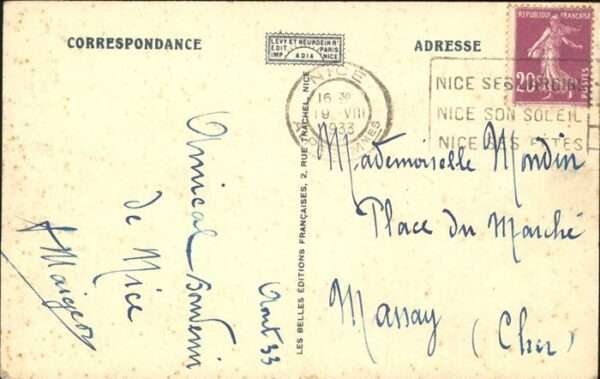 CORRESPONDANCE
LÉVY ET NEURDEIN Rs
EDIT. PARIS
IMP. ADIA NICE
ADRESSE
REPUBLIQUE FRANÇAISE
20c
POSTES
NICE
16 30
19 VIII
1933
NICE SES
NICE SON SOLEIL
NICE SES FÊTES
Amical Souvenir
de Nice
Août 33
LES BELLES ÉDITIONS FRANÇAISES, 2, RUE TRACHEL, NICE
Mademoiselle Mondin
Place du Marché
Massay (Cher)